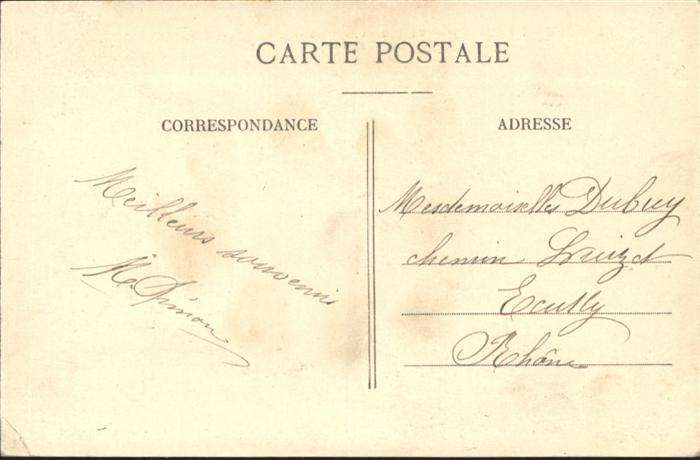 CARTE POSTALE
CORRESPONDANCE
Meilleurs souvenirs
M. Simon
ADRESSE
Mesdemoiselles Dubuy
chemin
Ecully
Rhône